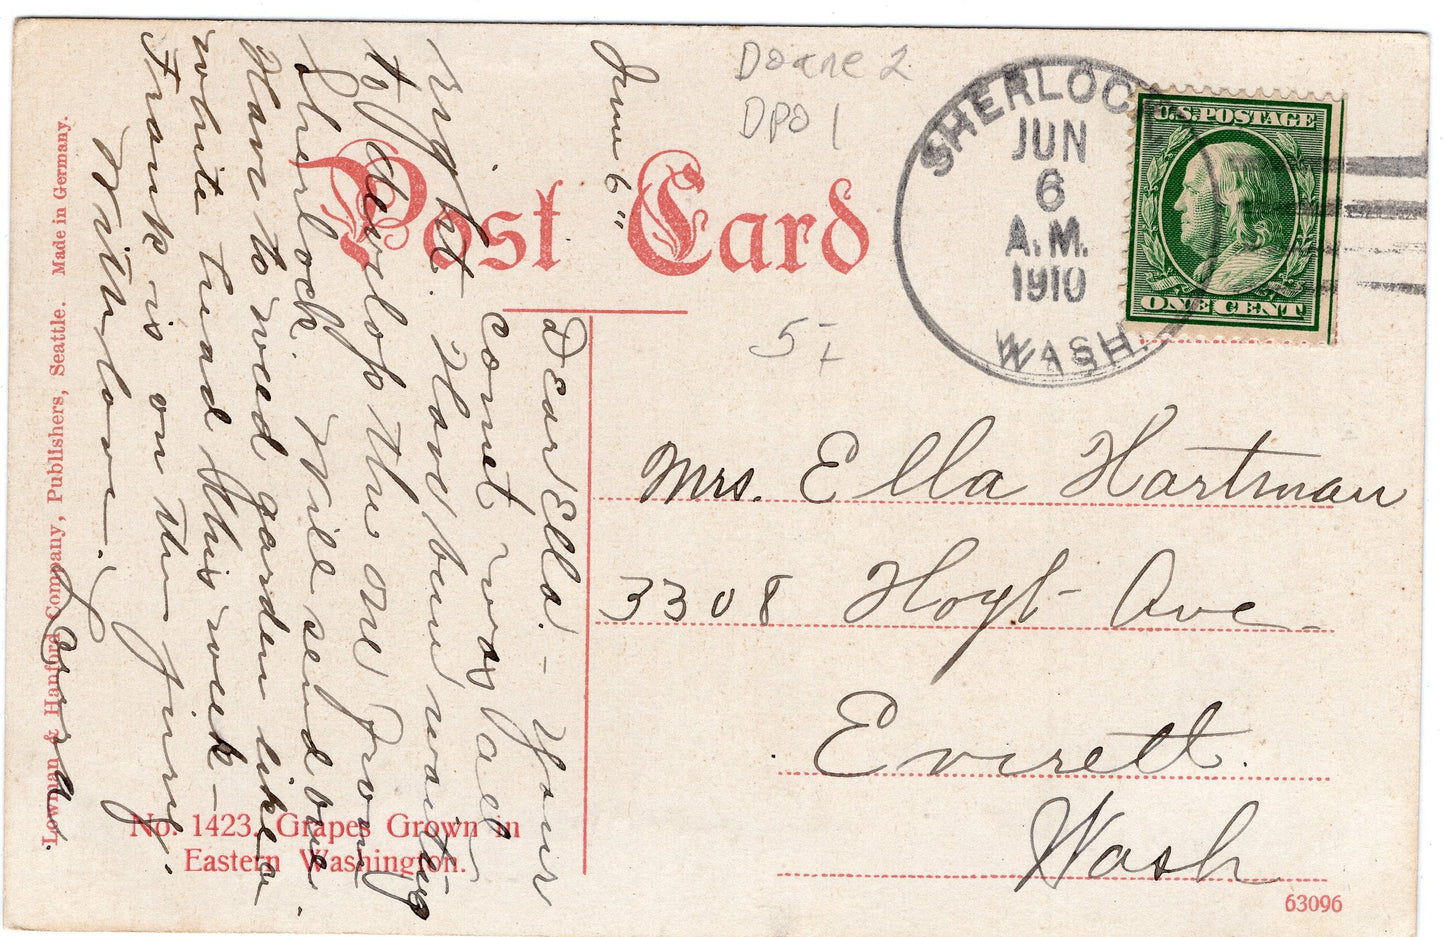 Doane 2
DPO 1
SHERLOCK
JUN
6
A.M.
1910
WASH.
U.S. POSTAGE
ONE CENT
Post Card
5-
June 6"
Dear Ella! - Your
comet was all
right. Have been waiting
to develop the one from
Sherlock. Will send one.
Have to weed garden like a
white head this week -
Frank is on the jury.
Mrs. Ella Hartman
3308 Hoyt Ave.
Everett.
Wash
No. 1423. Grapes Grown in
Eastern Washington.
Lowman & Hanford Company, Publishers, Seattle. Made in Germany.
63096